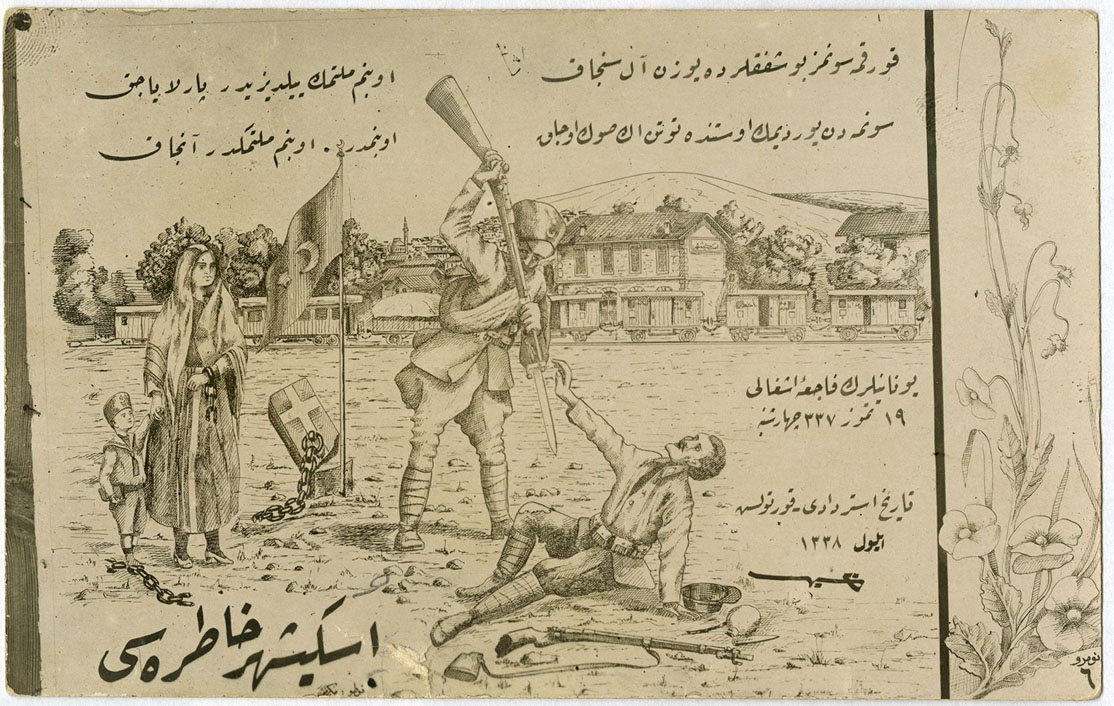 قورقمه سونمز بو شفقلرده یوزن آل سنجاق
سونمه دن یوردیمك اوستنده توتن اك صوك اوجاق
اوبنم ملتمك ییلدیزیدر پارلایاجق
اوبنمدر . اوبنم ملتمكدر آنجاق
یونانیلرك فاجعهٔ اشغالی
١٩ تموز ٣٣٧ چهارشنبه
تاریخ استردادی - قورتولس
ایلول ١٣٣٨
اسكیشهر خاطره سی
نومرو
٦